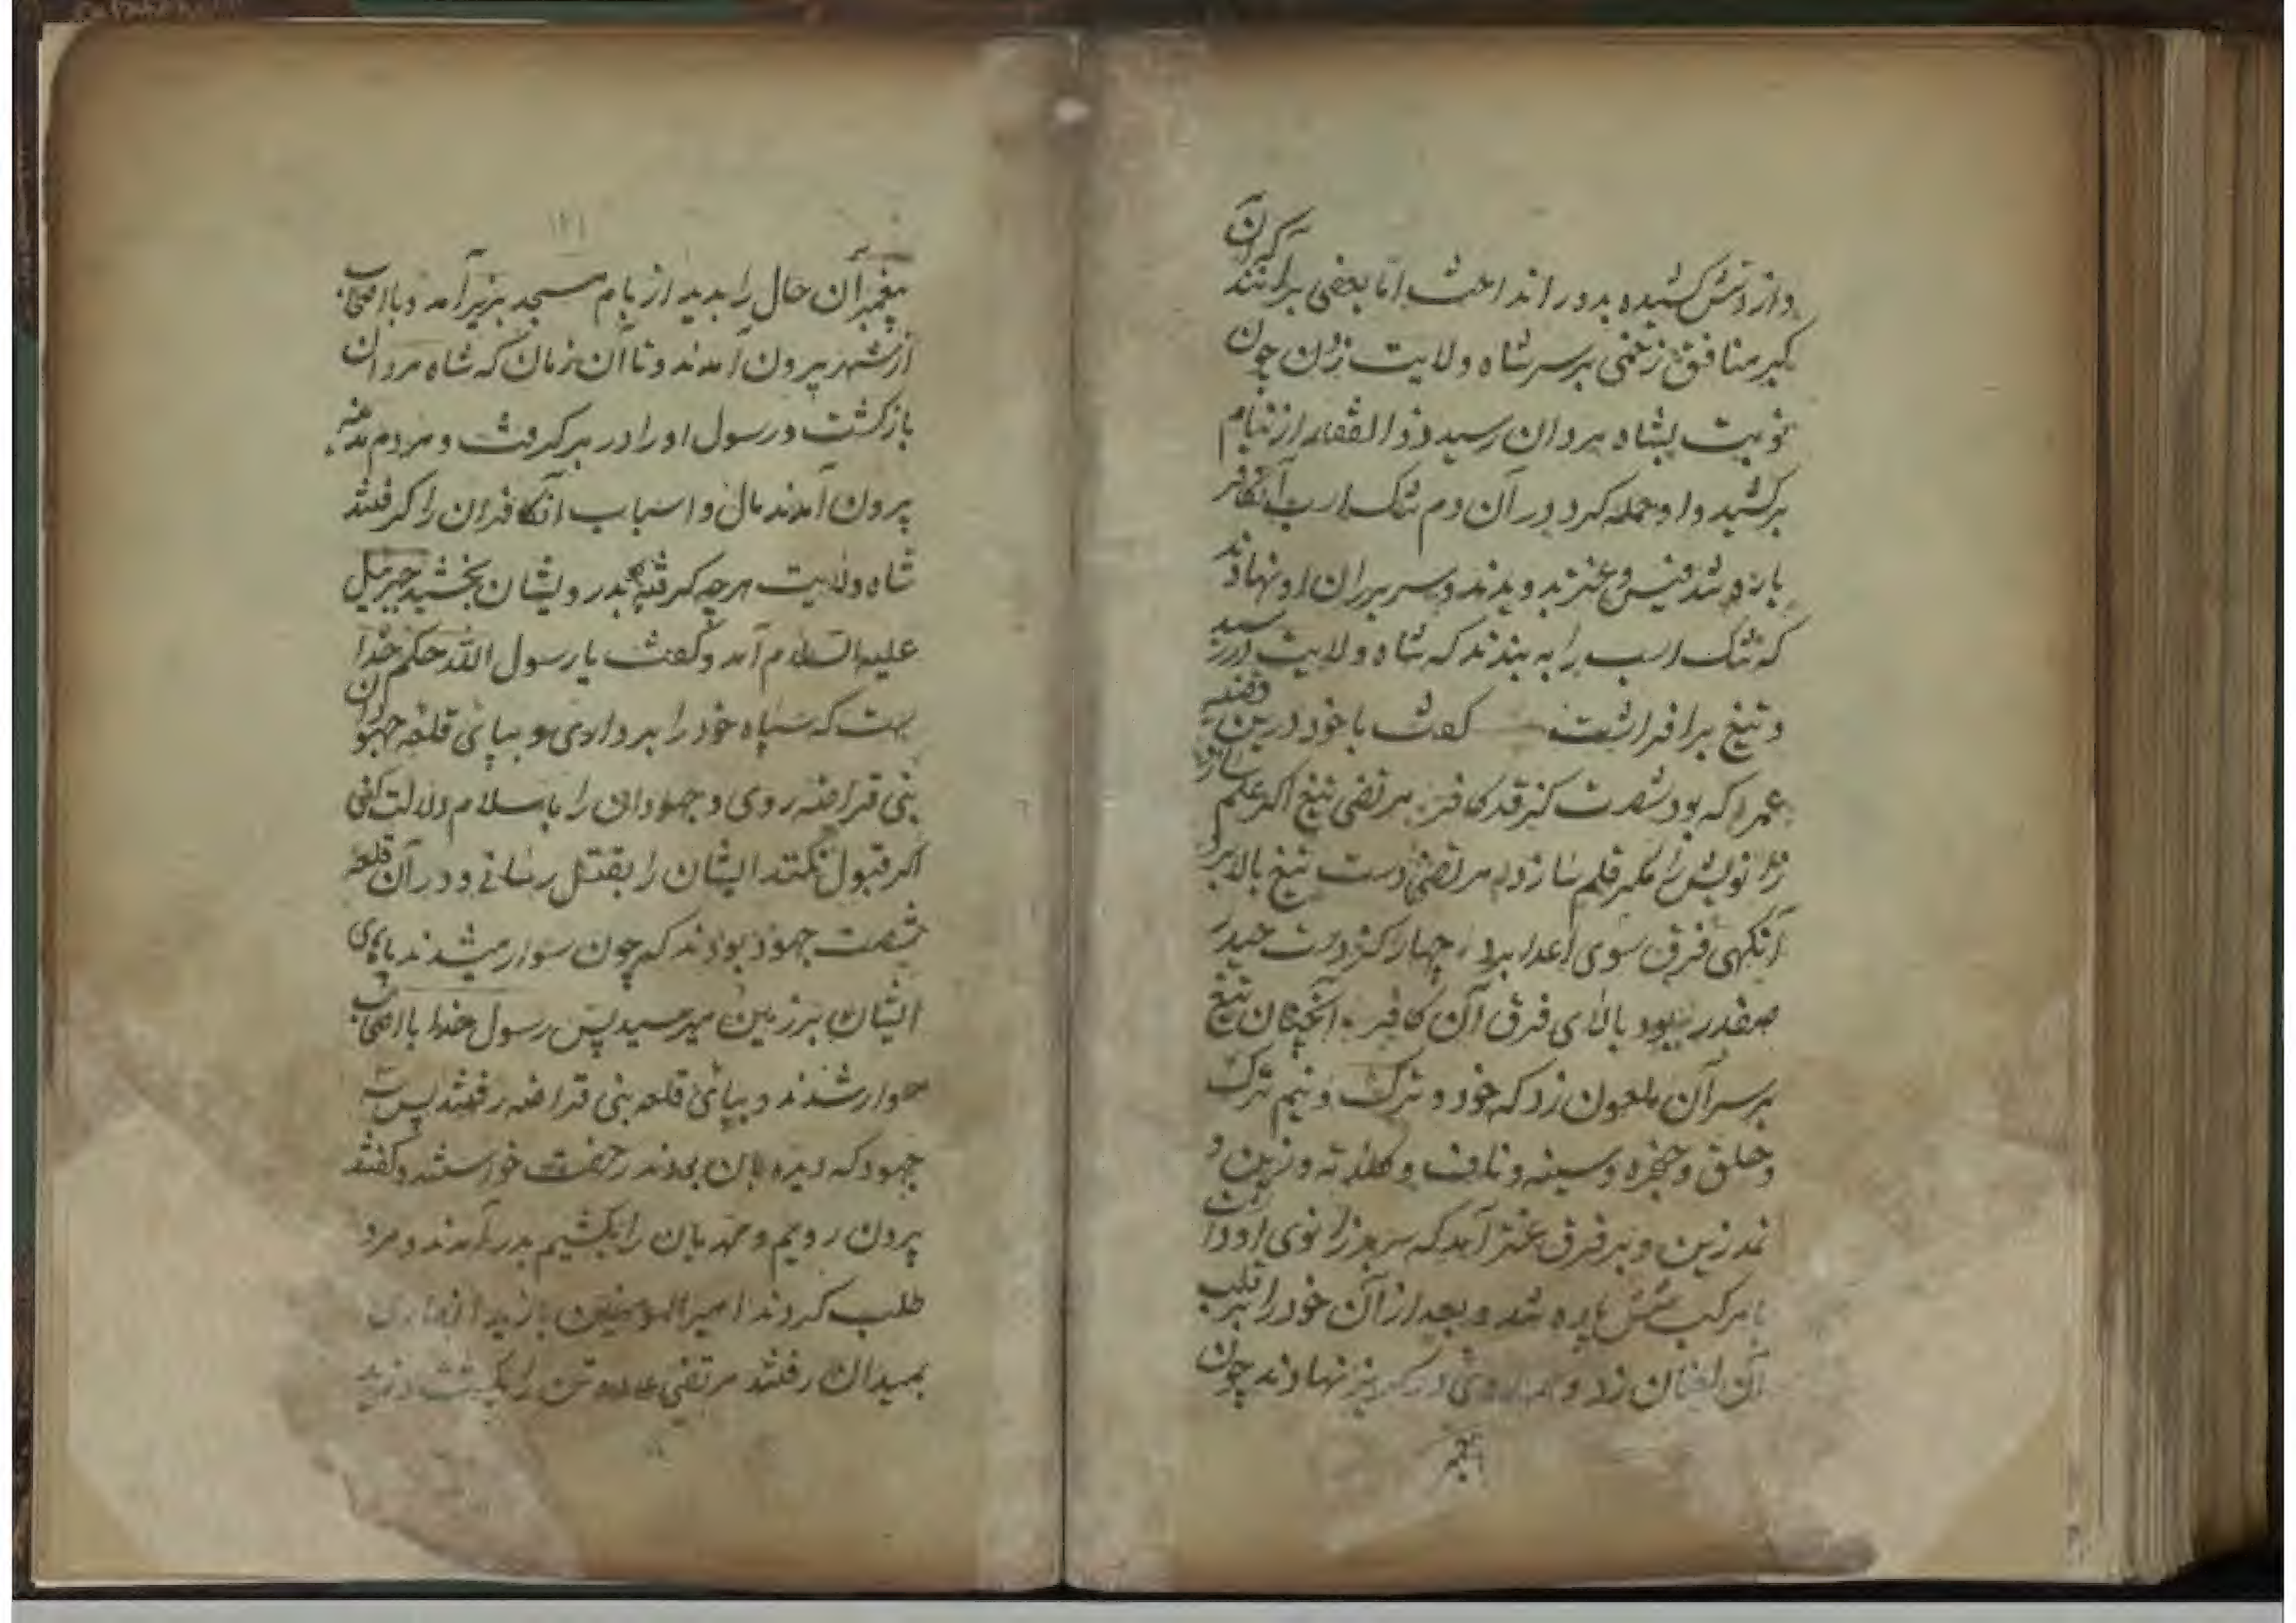 و از دوش کشیده بدور انداخت اما بعضی برانند که آن
کبر منافق زخمی بر سر شاه ولایت زد و چون
نوبت بشاه مردان رسید ذوالفقار از نیام
برکشید و او حمله کرد در آن دم تنک اسب آنکافر
پاره شد قیس و عنتر بدویدند و سر بر ران او نهادند
که تنک اسب را به بندند که شاه ولایت در رسید
و تیغ برافراشت کفت با خود درین قضیه
عمر را که بود شصت کز قد کافر مرتضی تیغ اکر علم سازد
زانویش را مکر قلم سازد مرتضی دست تیغ بالا برد
آنکهی فرق سوی اعدا برد چهار کز دست حیدر
صفدر ببود بالای فرق آن کافر آنچنان تیغ
بر سر آن ملعون زد که خود و ترک و نیم ترک
و حلق و حنجره و سینه و ناف و کلاته و زین و
نمد زین و بر فرق عنتر آمد که سر بر زانوی او داشت
با مرکب شش پاره شد و بعد از آن خود را بر قلب
آن لعینان زد و روی در کریز نهادند چون
پیغمبر
۱۲۱
پیغمبر آن حال را بدید از بام مسجد بزیر آمد و با اصحاب
از شهر بیرون آمدند و تا آن زمان که شاه مردان
بازکشت و رسول او را در بر کرفت و مردم مدینه
بیرون آمدند مال و اسباب آنکافران را کرفتند
شاه ولایت هرچه کرفته بدرویشان بخشید جبرئیل
علیه السلام آمد و کفت یا رسول الله حکم خدا
بهت که سپاه خود را برداری و بپای قلعه جهودان
بنی قراضه روی و جهودان را باسلام دلالت کنی
اکر قبول نکنند ایشان را بقتل رسانی و در آن قلعه
شصت جهود بودند که چون سوار میشدند پای
ایشان بر زمین میرسید پس رسول خدا با اصحاب
سوار شدند و بپای قلعه بنی قراضه رفتند پس سه
جهود که دیده بان بودند رخصت خواستند و کفتند
بیرون رویم و مهربان را بکشیم بدر آمدند و مرد
طلب کردند امیرالمؤمنین با زید انصاری
بمیدان رفتند مرتضی دو تن را بکشت و زید